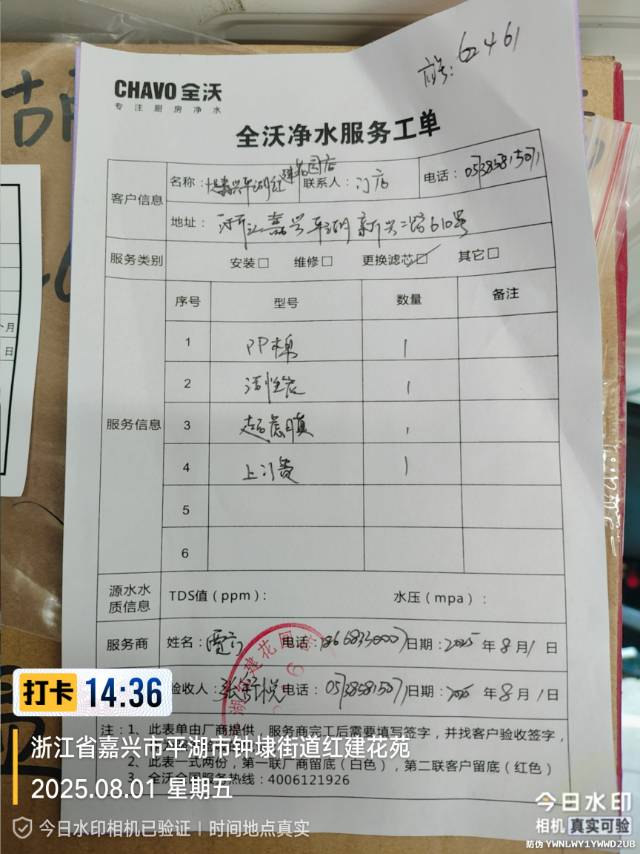 62461
CHAVO 全沃
专注厨房净水
全沃净水服务工单
客户信息
名称： 联系人：门店 电话：
地址：浙江嘉兴平湖新兴二路610号
服务类别 安装□ 维修□ 更换滤芯☑ 其它□
服务信息
序号 型号 数量 备注
1 PP棉 1
2 活性炭 1
3 超滤膜 1
4 上门费 1
5
6
源水水质信息 TDS值（ppm）： 水压（mpa）：
服务商 姓名： 电话： 日期：2025年8月1日
验收人： 电话： 日期：2025年8月1日
建花园
注：1、此表单由厂商提供，服务商完工后需要填写签字，并找客户验收签字，
2、此表一式两份，第一联厂商留底（白色），第二联客户留底（红色）
3、全沃全国服务热线：4006121926
打卡 14:36
浙江省嘉兴市平湖市钟埭街道红建花苑
2025.08.01 星期五
今日水印相机已验证 | 时间地点真实
今日水印
相机 真实可验
防伪 YWNLWY1YWWD2UB